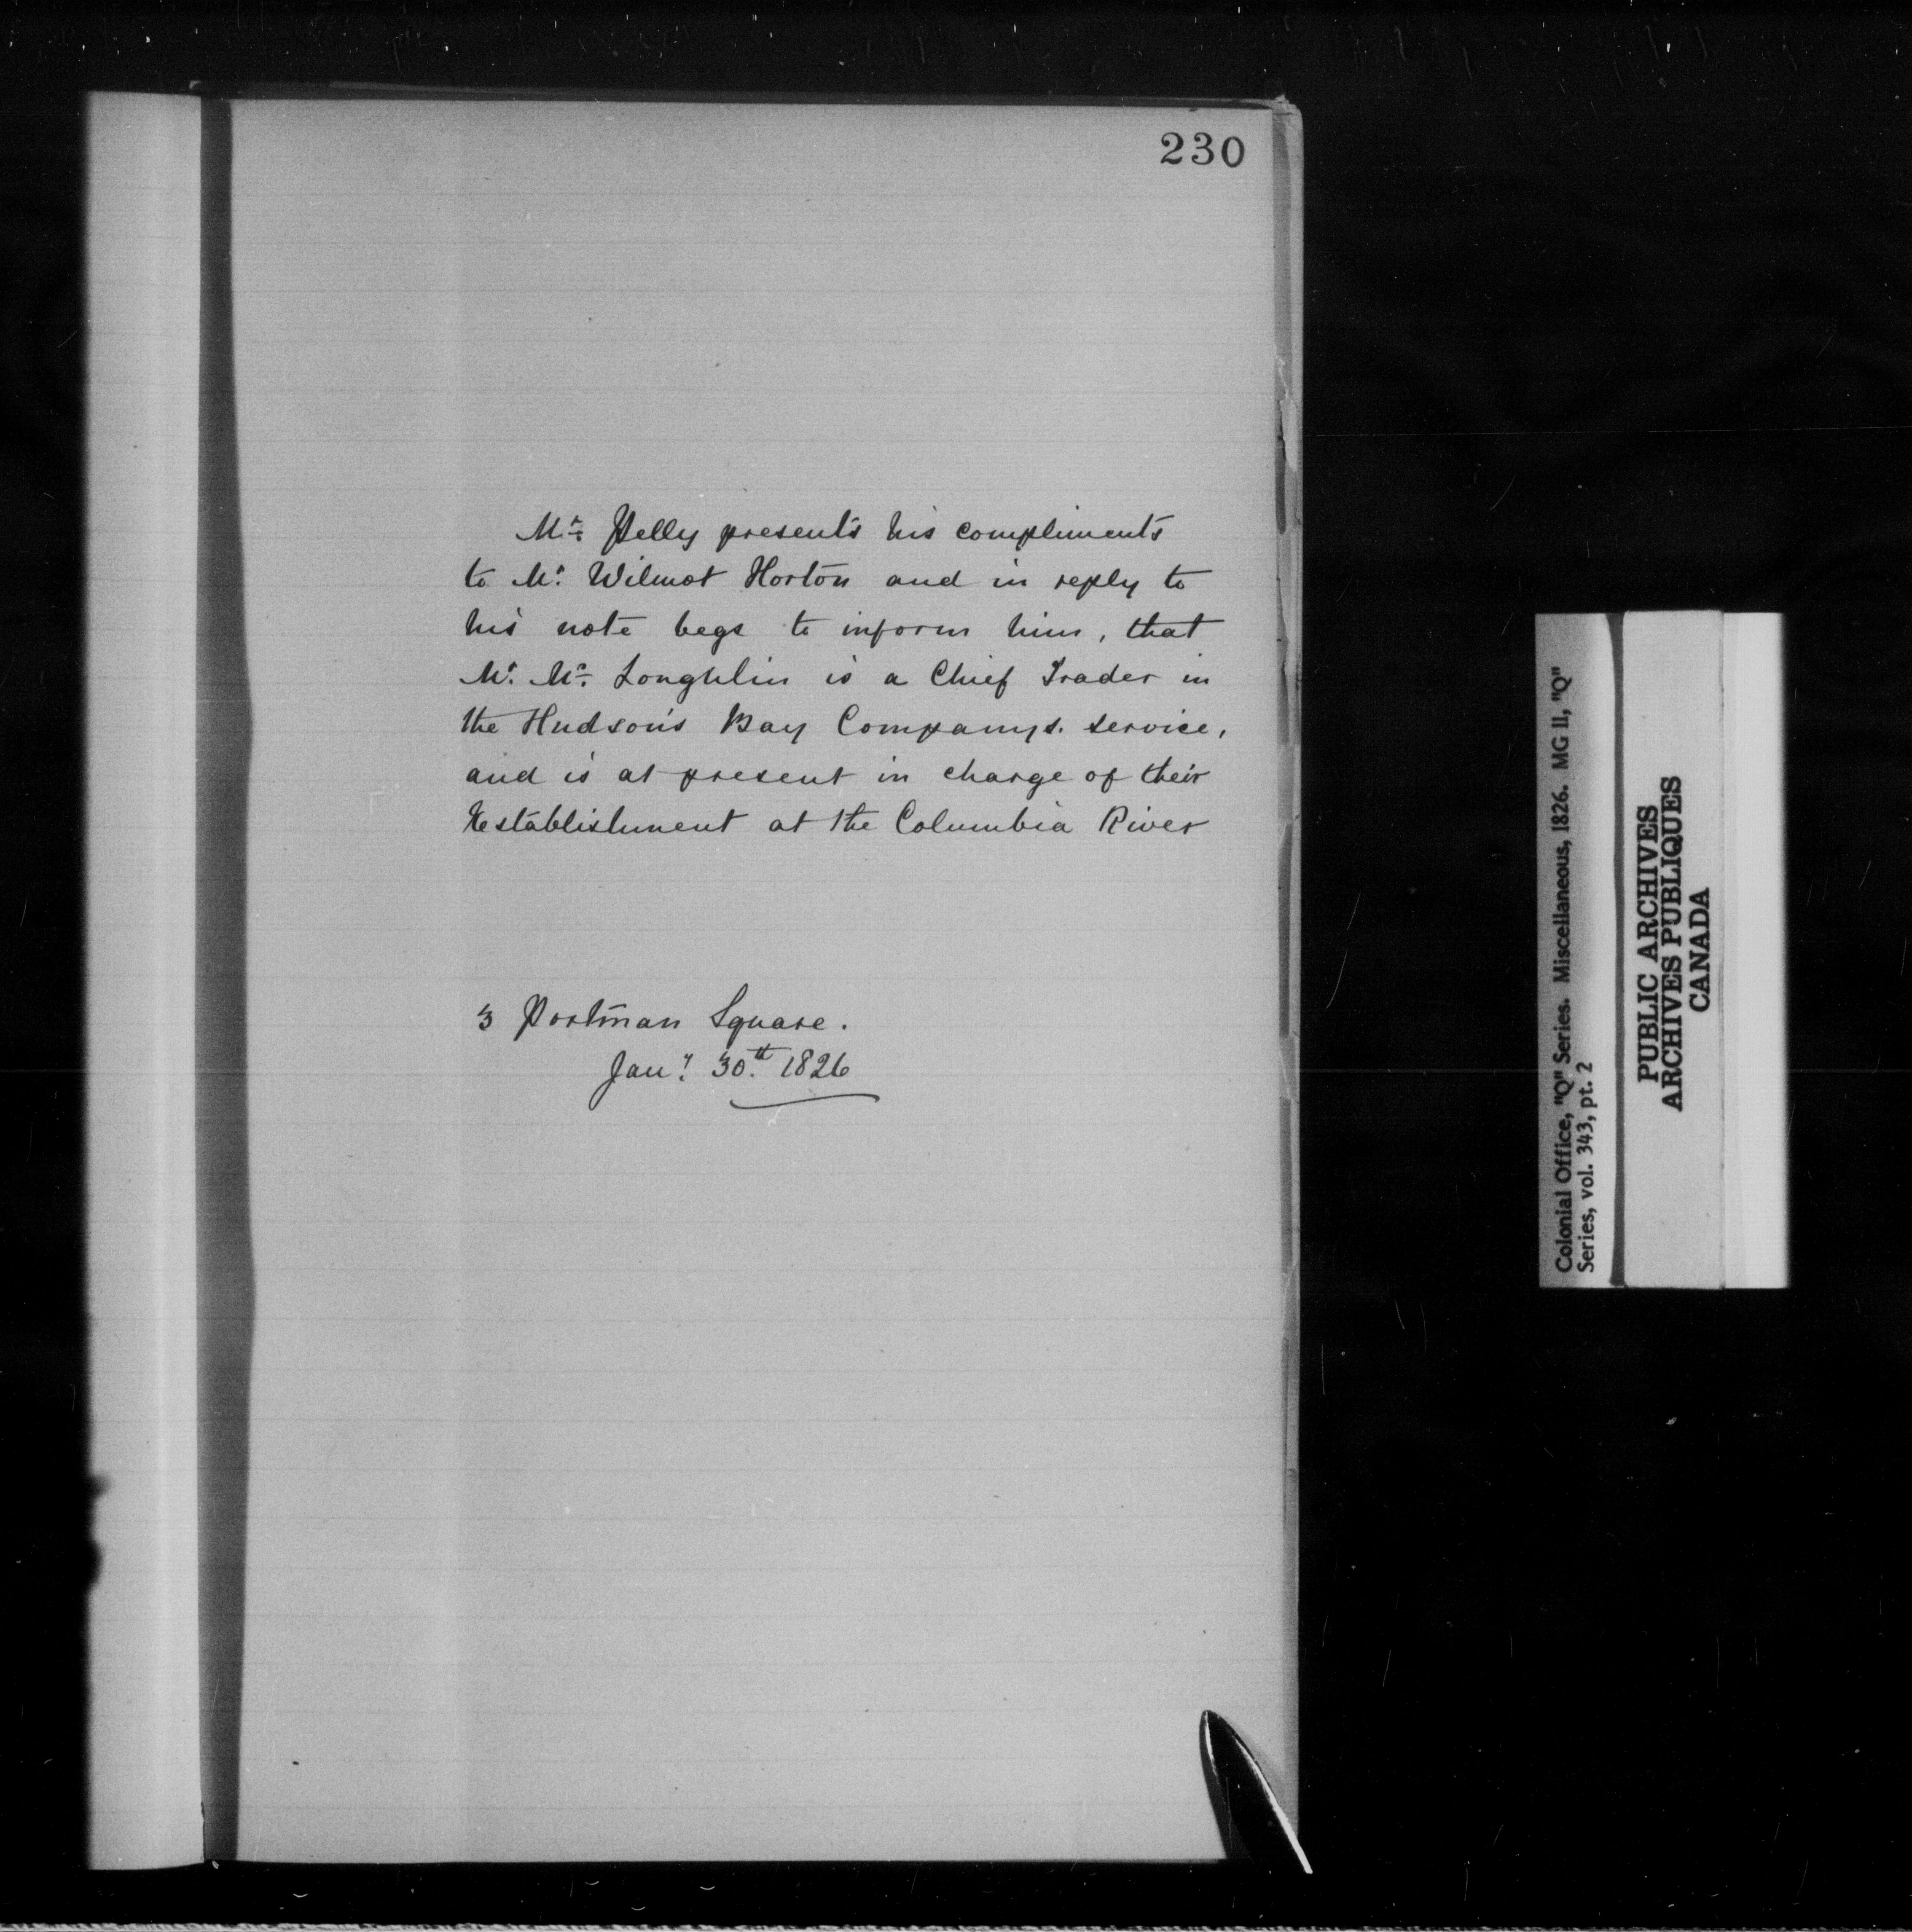 230
Mr. Pelly presents his compliments
to Mr. Wilmot Horton and in reply to
his note begs to inform him, that
Mr. Mc. Loughlin is a Chief Trader in
the Hudson's Bay Company's. service,
and is at present in charge of their
Establishment at the Columbia River
3 Portman Square.
Jany. 30.th 1826
Colonial Office, "Q" Series. Miscellaneous, 1826. MG 11, "Q"
Series, vol. 343, pt. 2
PUBLIC ARCHIVES
ARCHIVES PUBLIQUES
CANADA